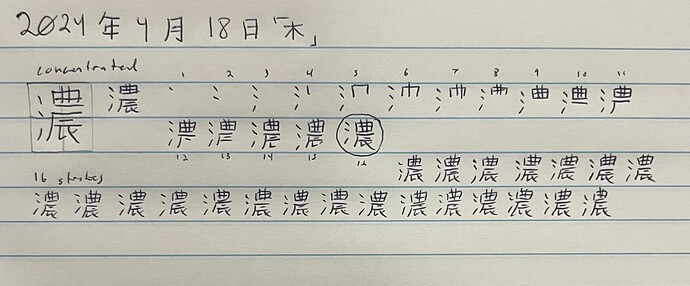 2024年4月18日「木」
concentrated
濃 濃 1 2 3 4 5 6 7 8 9 10 11
濃 12 13 14 15 16
濃 濃 濃 濃 濃 濃 濃
16 strokes
濃 濃 濃 濃 濃 濃 濃 濃 濃 濃 濃 濃 濃 濃